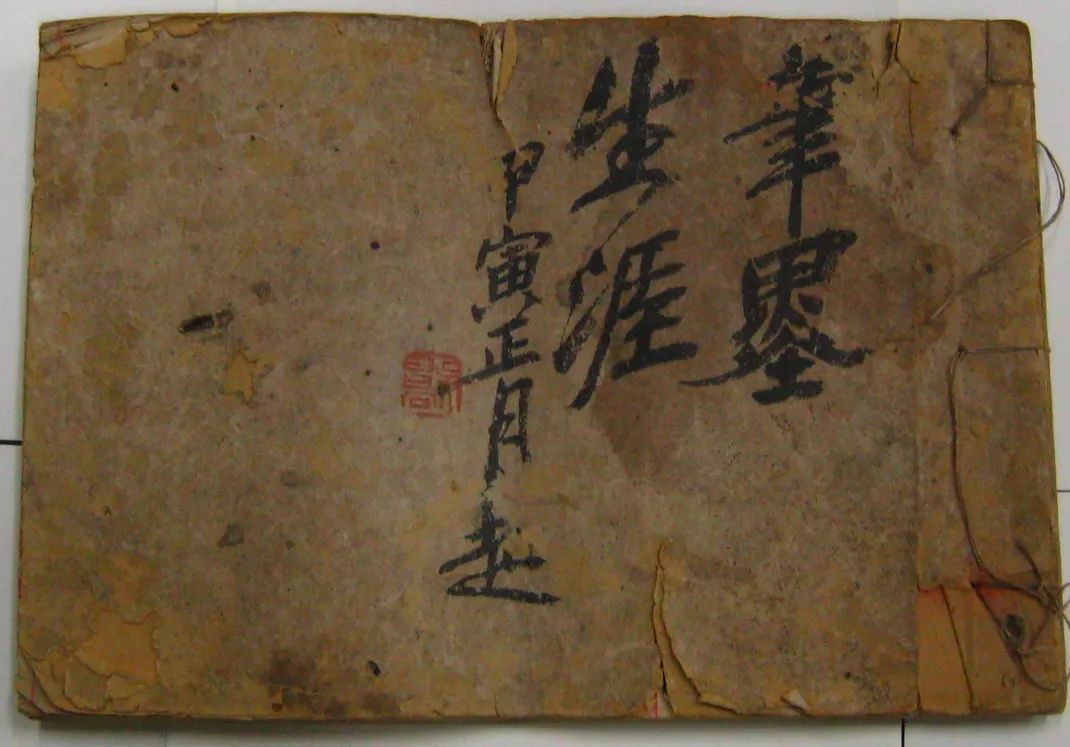 筆墨
生涯
甲寅正月起